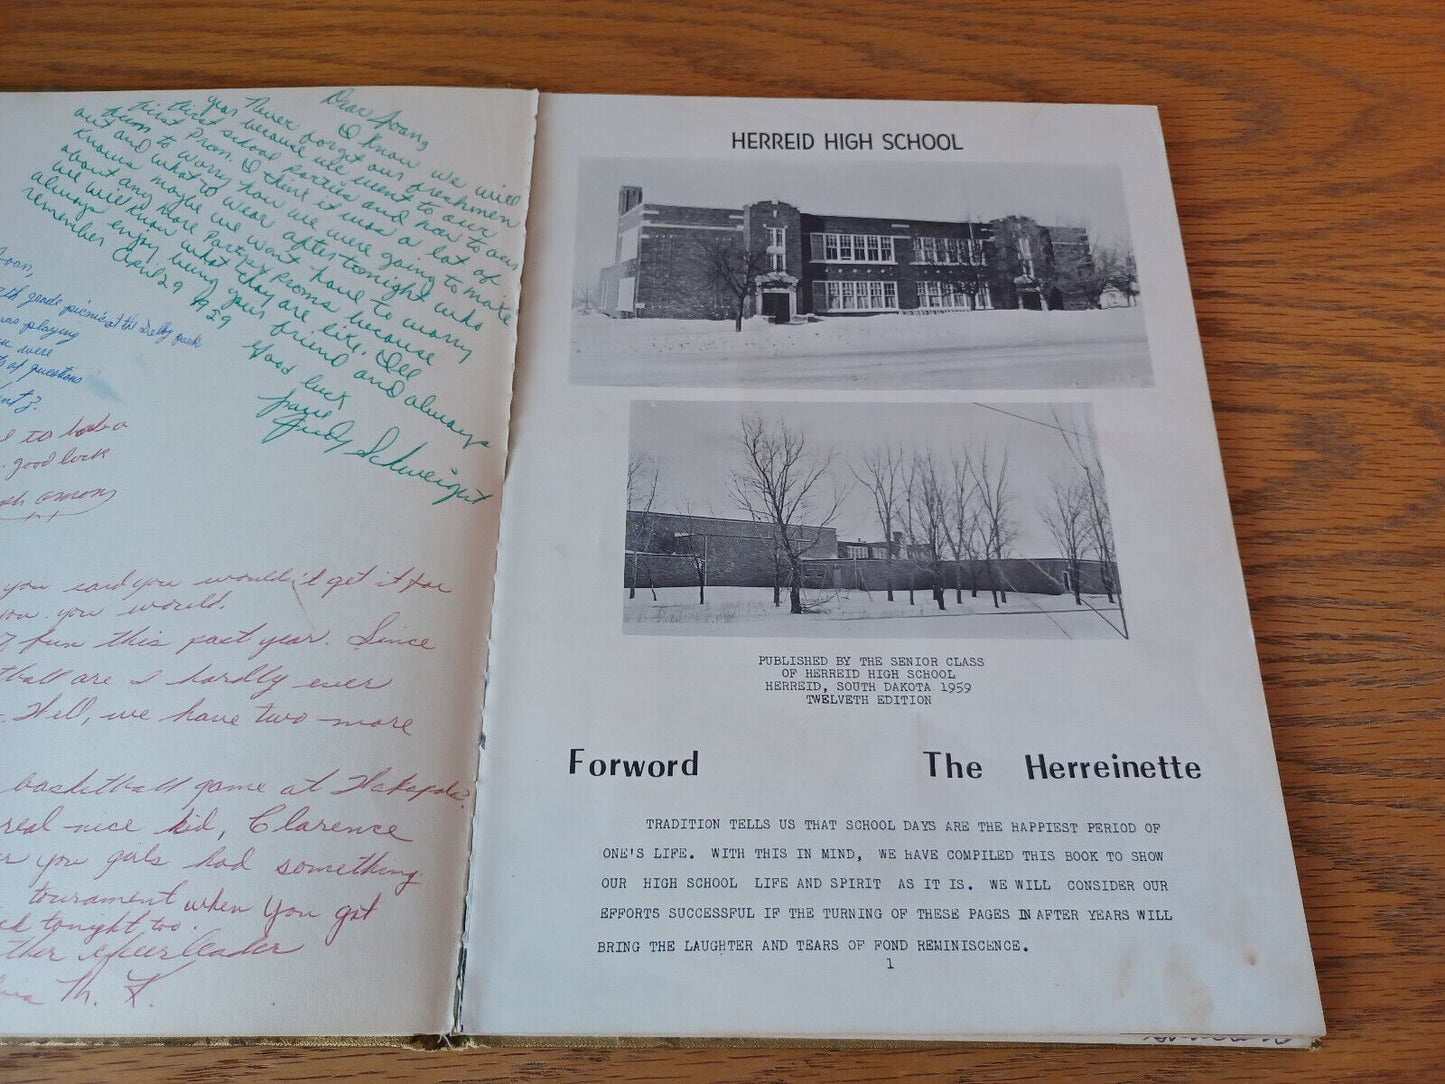 Dear Joan,
I know we will
year never forget our freshmen
first school parties and our
first Prom. I think it was a lot of
them to worry how we were going to make
out and what to wear afternight who
Knows maybe we won't have to worry
about any more Partys & Proms because
we will know what they are like. I'll
always enjoy being your friend and always
remember April 29 1959
Good luck always
Judy Schweigert
Joan,
grade picnic at the Selby park
was playing
were
of questions
to
good luck
you said you wouldn't get it for
you you would.
fun this past year. Since
are I hardly ever
Well, we have two more
basketball game at Wakpala?
real nice kid, Clarence
you girls had something
tournament when you got
tonight, too.
cheerleader
M. F.
HERREID HIGH SCHOOL
PUBLISHED BY THE SENIOR CLASS
OF HERREID HIGH SCHOOL
HERREID, SOUTH DAKOTA 1959
TWELVETH EDITION
Forword The Herreinette
TRADITION TELLS US THAT SCHOOL DAYS ARE THE HAPPIEST PERIOD OF
ONE'S LIFE. WITH THIS IN MIND, WE HAVE COMPILED THIS BOOK TO SHOW
OUR HIGH SCHOOL LIFE AND SPIRIT AS IT IS. WE WILL CONSIDER OUR
EFFORTS SUCCESSFUL IF THE TURNING OF THESE PAGES IN AFTER YEARS WILL
BRING THE LAUGHTER AND TEARS OF FOND REMINISCENCE.
1